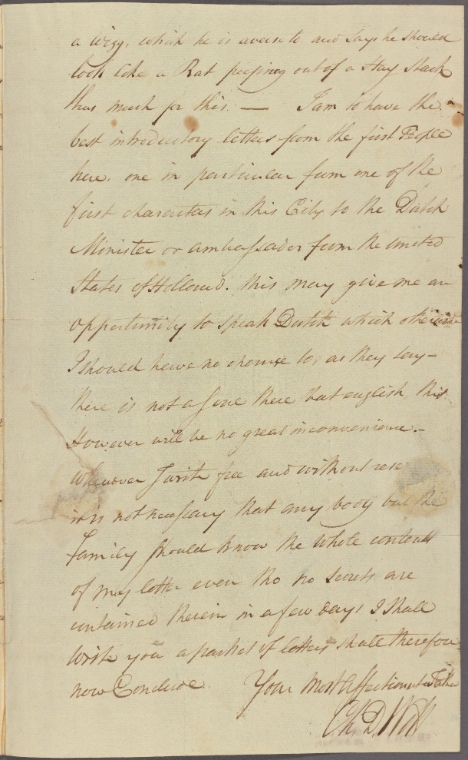 a wigg, which he is averse to and says he should
look like a Rat peeping out of a Hay Stack
thus much for this. — I am to have the
best introductory letters from the first People
here. one in particular from one of the
first characters in this City to the Dutch
Minister or ambassador from the United
States of Holland. this may give me an
opportunity to speak Dutch which otherwise
I should have no chance to, as they say -
there is not a soul there but english this
However will be no great inconvenience. -
Whenever I write free and without
it is not necessary that any body but the
Family should know the whole contents
of my letter even tho no Secrets are
contained therein in a few days I shall
write you a packet of letters shall therefore
now Conclude Your most Affectionate
Ch. D.